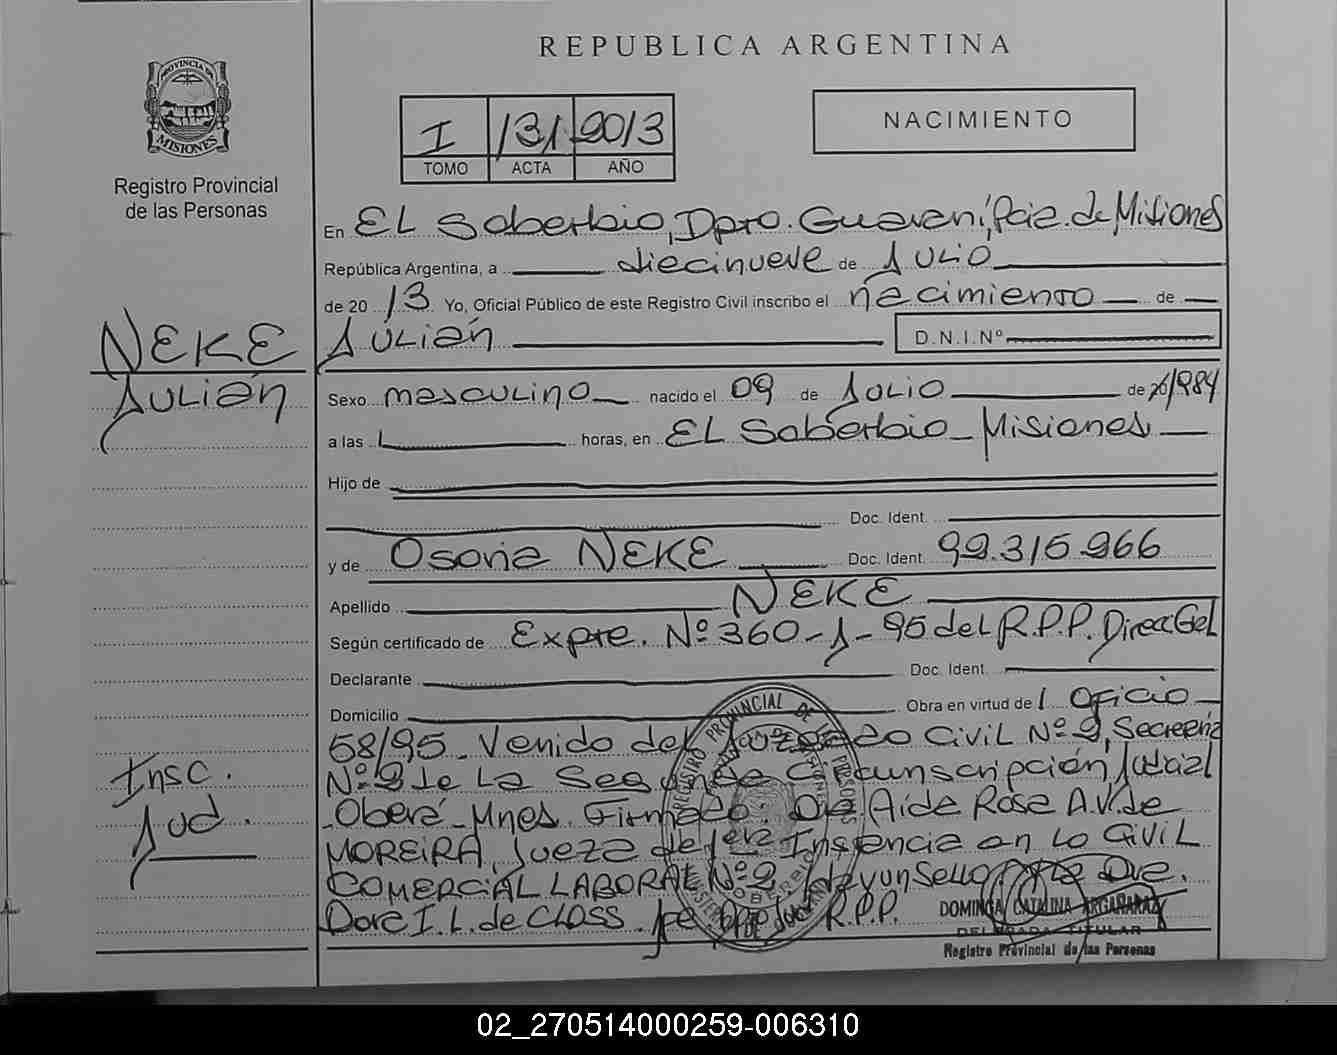 REPUBLICA ARGENTINA
PROVINCIA DE
MISIONES
Registro Provincial
de las Personas
I 131 2013
TOMO ACTA AÑO
NACIMIENTO
En EL Soberbio, Dpto. Guaraní, Pcia. de Misiones
República Argentina, a diecinueve de Julio
de 2013 Yo, Oficial Público de este Registro Civil inscribo el nacimiento de
Julián D.N.I.Nº
NEKE
Julián
Sexo masculino nacido el 09 de Julio de 1984
a las horas, en EL Soberbio - Misiones
Hijo de
Doc. Ident.
y de Osoria NEKE Doc. Ident. 99.315.966
Apellido NEKE
Según certificado de Expte. Nº 360-J-95 del R.P.P. Direcc Gel
Declarante Doc. Ident.
Domicilio Obra en virtud de Oficio
58/95 Venido del Juzgado Civil Nº 2, Secretaria
Nº 2 de La Segunda Circunscripción Judicial
Oberá - Mnes. Firmado: Dra Aide Rosa A.V. de
MOREIRA, Jueza de 1era Instancia en Lo Civil
COMERCIAL LABORAL Nº 2, Hay un Sello. Dra.
Dora I. L. de CLOSS. Jefe Dpto Jud R.P.P.
Insc.
Jud.
REGISTRO PROVINCIAL DE LAS PERSONAS
DOMINGA CATALINA ARGAÑARAZ
DELEGADA TITULAR
Registro Provincial de las Personas
02_270514000259-006310